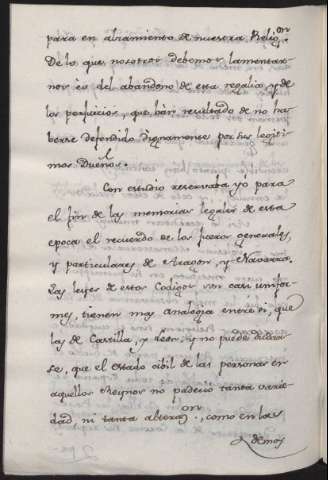 para en alzamiento de nuestra Relig.on
De lo que nosotros debemos lamentar-
nos es del abandono de esta regalia y de
los perjuicios, que hán resultado de no ha-
berse defendido dignamente por sus legiti-
mos Dueños.
Con estudio reservaba yo para
el fin de las memorias legales de esta
epoca el recuerdo de los fueros generales,
y particulares de Aragon y Navarra.
Las leyes de estos Codigos son casi unifor-
mes, tienen muy analogia entre si, que
las de Castilla, y Leon; y no puede dudar-
se, que el estado cibil de las personas en
aquellos Reynos no padecio tanta varie-
dad, ni tanta alteraz.on, como en los
demas